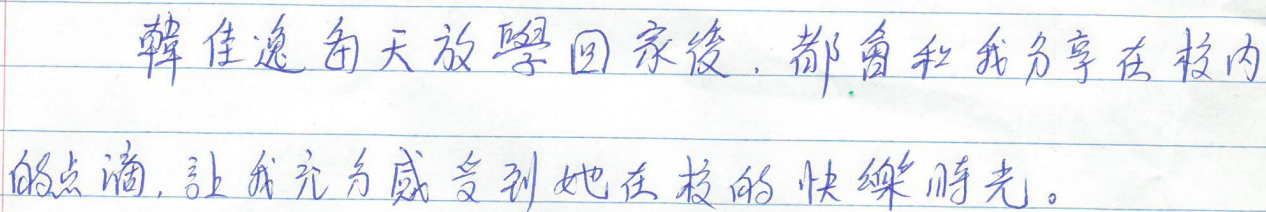 韓佳逸每天放學回家後，都會和我分享在校內
的点滴，讓我充分感受到她在校的快樂時光。